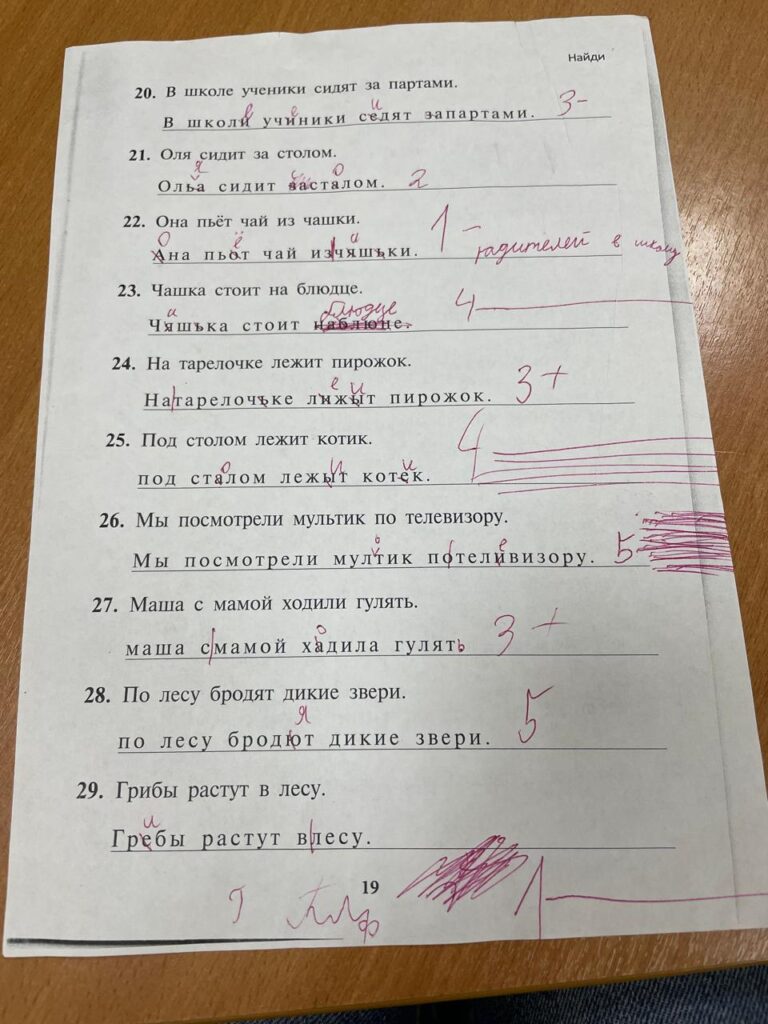 Найди
20. В школе ученики сидят за партами.
В школи учиники седят запартами. 3-
21. Оля сидит за столом.
Олья сидит засталом. 2
22. Она пьёт чай из чашки.
Ана пьот чай изчяшьки. 1-
радителей в школу
23. Чашка стоит на блюдце.
блюдце
Чяшька стоит наблюце. 4
24. На тарелочке лежит пирожок.
Натарелочьке лижыт пирожок. 3+
25. Под столом лежит котик.
под сталом лежыт котек. 4
26. Мы посмотрели мультик по телевизору.
Мы посмотрели мултик потеливизору. 5
27. Маша с мамой ходили гулять.
маша смамой хадила гулять 3+
28. По лесу бродят дикие звери.
по лесу бродют дикие звери. 5
29. Грибы растут в лесу.
Гребы растут влесу.
19
1